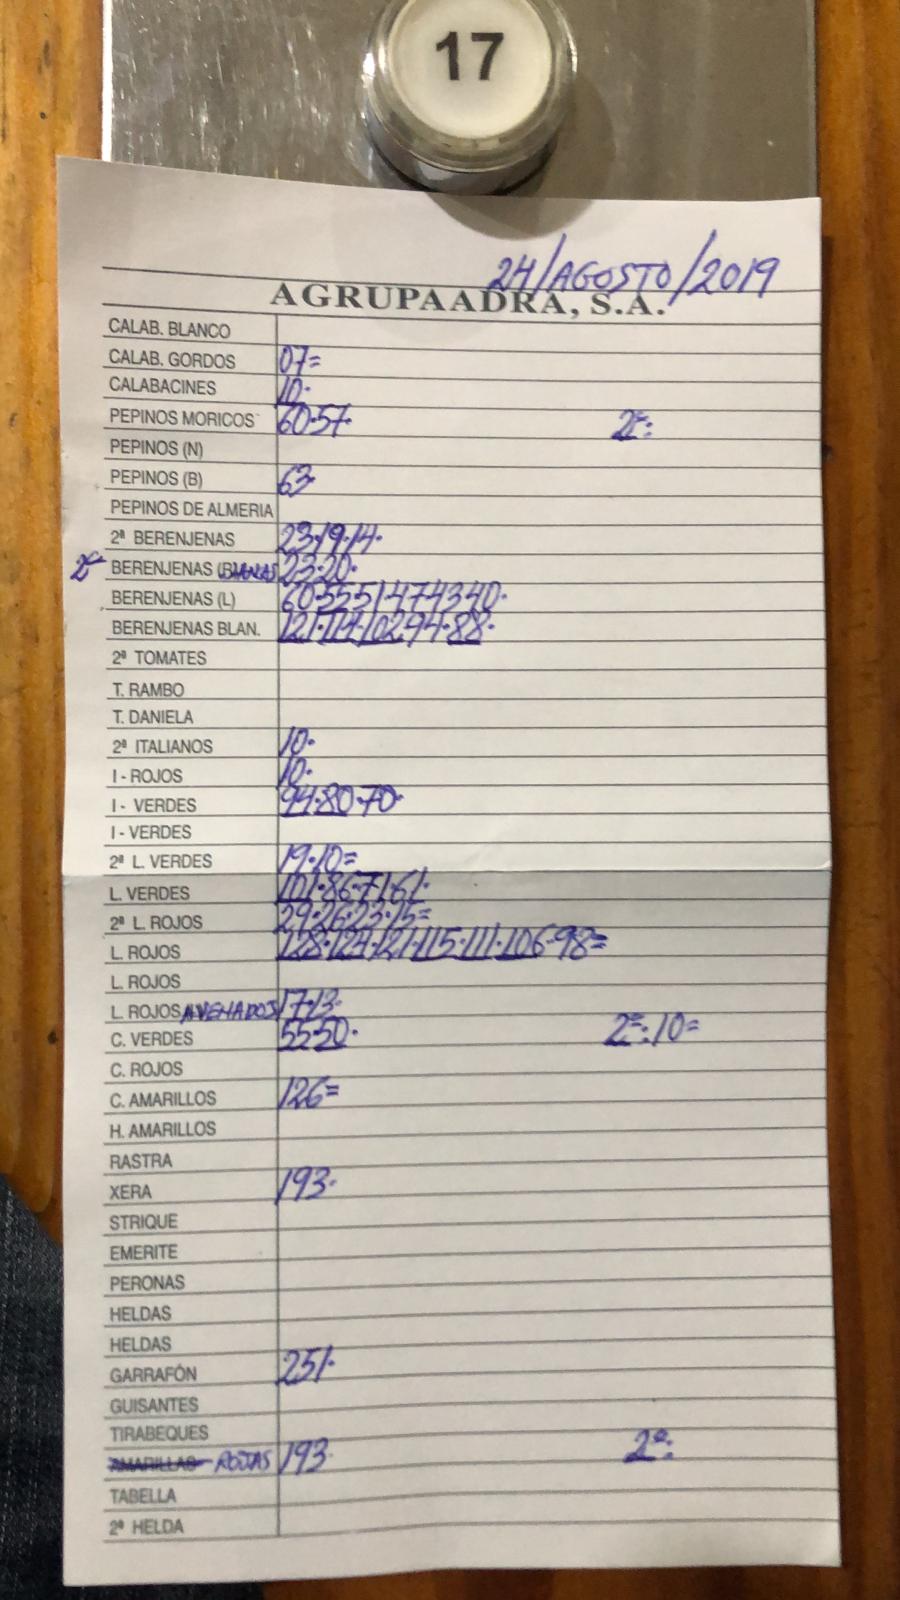 17
24/AGOSTO/2019
AGRUPAADRA, S.A.
CALAB. BLANCO
CALAB. GORDOS 07=
CALABACINES 10.
PEPINOS MORICOS 60.57. 2ª:
PEPINOS (N)
PEPINOS (B) 63
PEPINOS DE ALMERIA
2ª BERENJENAS 23.19.14.
2ª BERENJENAS (BLANCAS 23.20.
BERENJENAS (L) 60.55.51.47.43.40.
BERENJENAS BLAN. 121.114.102.94.88.
2ª TOMATES
T. RAMBO
T. DANIELA
2ª ITALIANOS 10.
I - ROJOS 10.
I - VERDES 94.80.70.
I - VERDES
2ª L. VERDES 19.10=
L. VERDES 101.86.71.61.
2ª L. ROJOS 29.26.23.15=
L. ROJOS 128.124.121.115.111.106.98=
L. ROJOS
L. ROJOS ASVENADOS 17.13.
C. VERDES 55.50. 2ª:10=
C. ROJOS
C. AMARILLOS 126=
H. AMARILLOS
RASTRA
XERA 193.
STRIQUE
EMERITE
PERONAS
HELDAS
HELDAS
GARRAFÓN 251.
GUISANTES
TIRABEQUES
AMARILLAS ROJAS 193. 2ª:
TABELLA
2ª HELDA